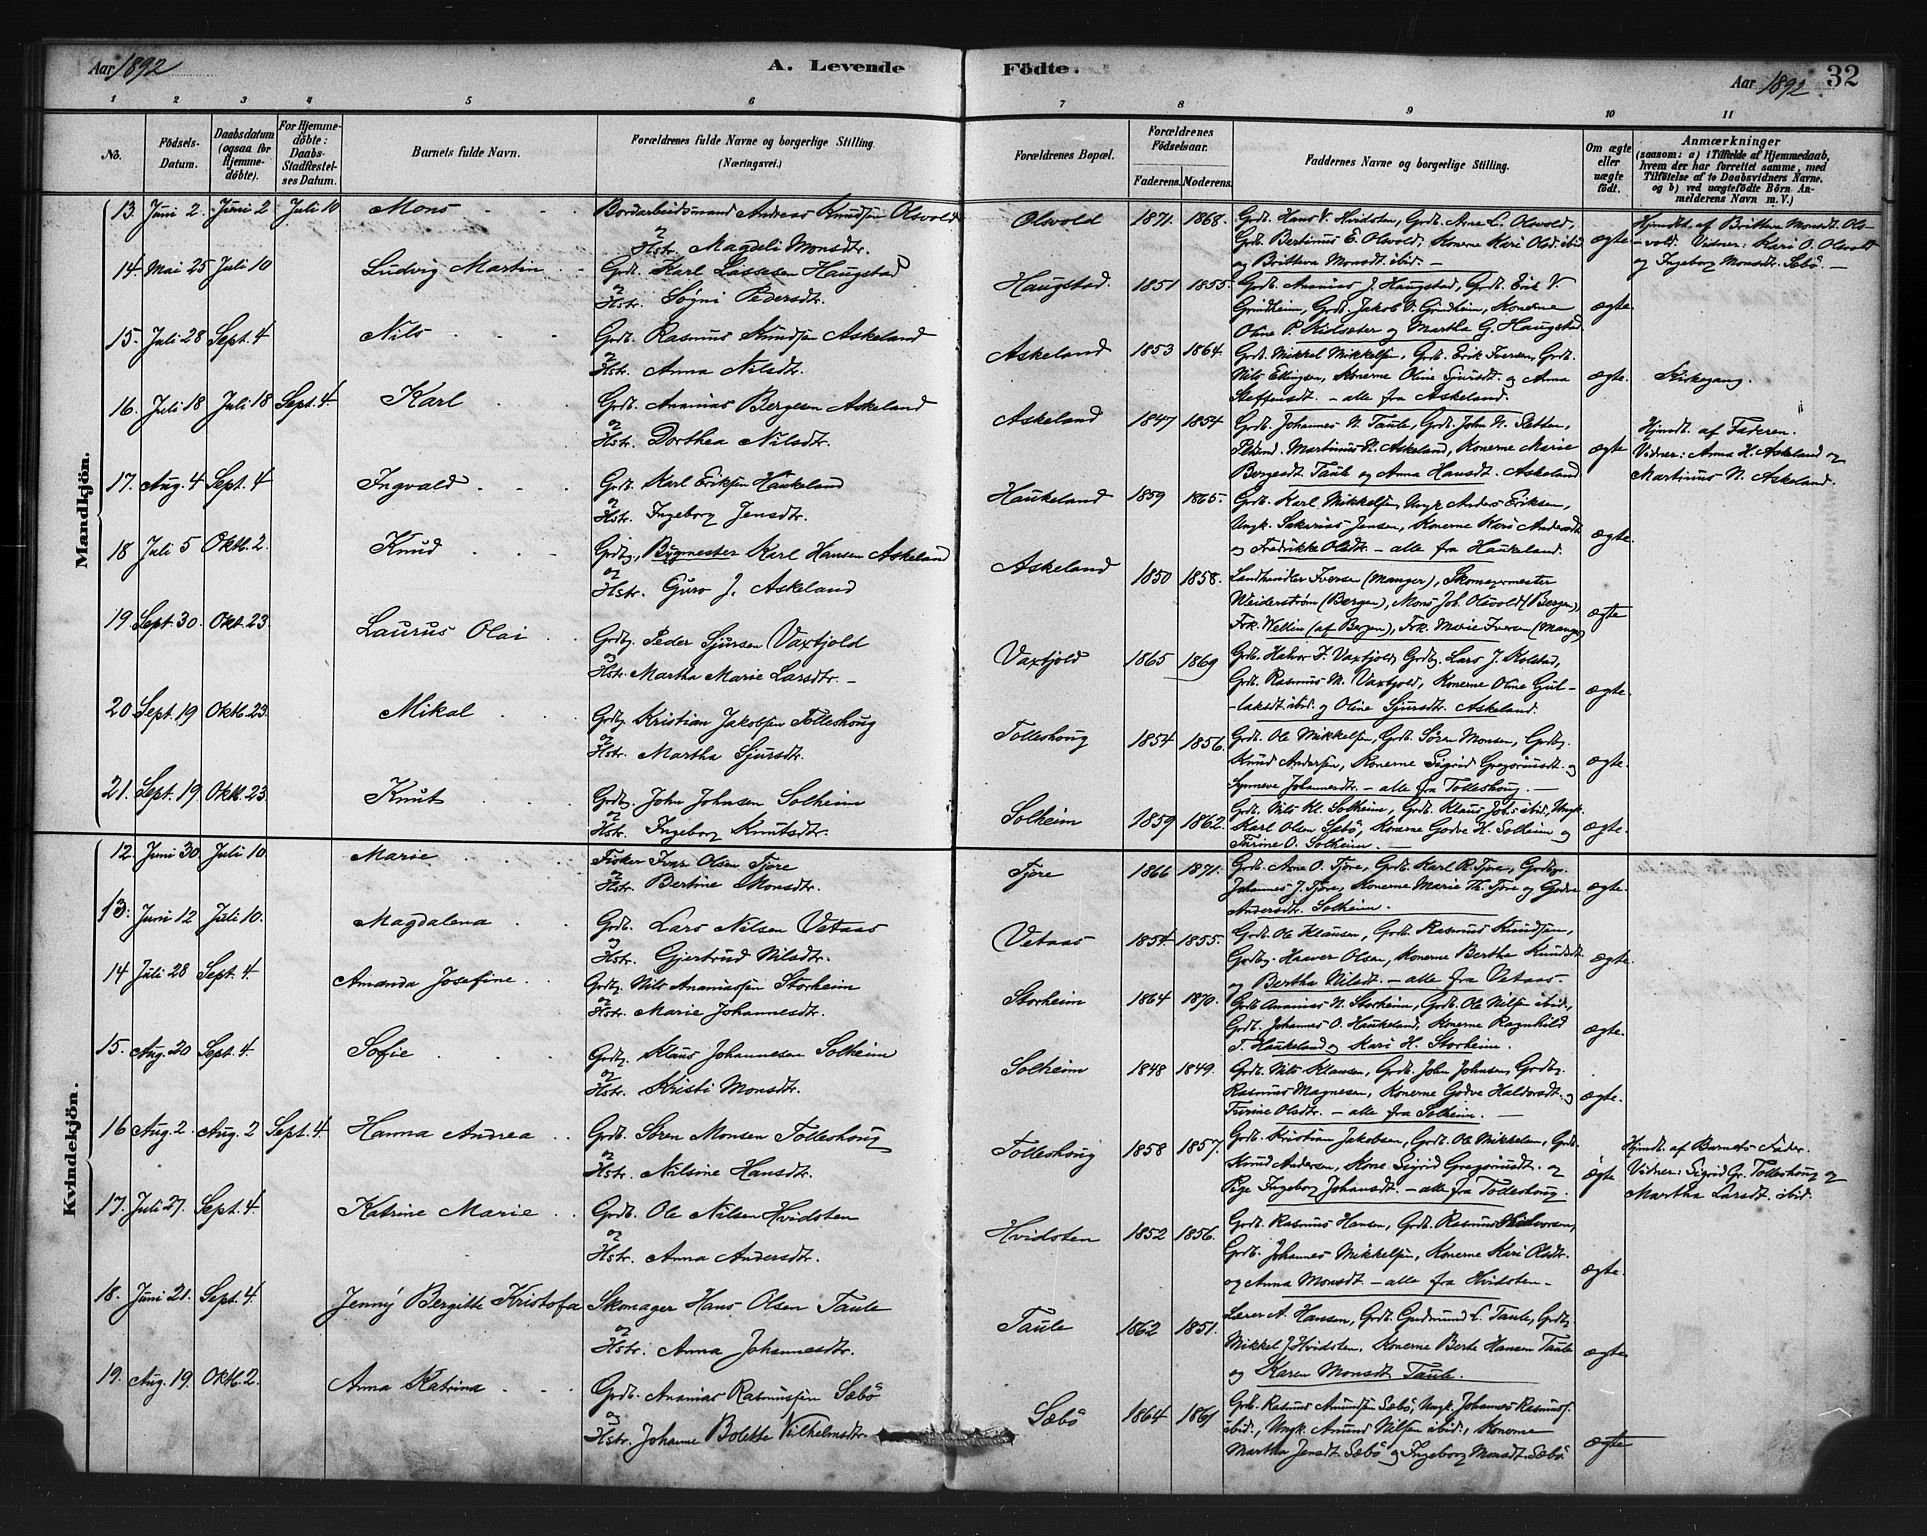 Aar 1892
A. Levende
Födte.
Aar 1892
32
1 2 3 4 5 6 7 8 9 10 11
No.
Födsels-Datum.
Daabsdatum (ogsaa for Hjemme-döbte).
For Hjemme-döbte: Daabs-Stadfæstel-ses Datum.
Barnets fulde Navn.
Forældrenes fulde Navne og borgerlige Stilling (Næringsvei.)
Forældrenes Bopæl.
Forældrenes Födselsaar.
Faderens. Moderens.
Faddernes Navne og borgerlige Stilling.
Om ægte eller uægte födt.
Anmærkninger
(saasom: a) i Tilfælde af Hjemmedaab, hvem der har forrettet samme, med Tilföielse af to Daabsvidners Navne. og b) ved uægtefödte Börn Anmelderens Navn m. V.)
Mandkjön.
13. Juni 2. Juni 2 Juli 10 Mons Bordarbeidsmand Andreas Knudsen Olsvold
og Hstr. Magdeli Monsdtr.
Olsvold 1871. 1868. Grdb. Hans V. Hvidsten, Grdb. Arne L. Olsvold,
Grdb. Bertinus E. Olsvold, Konerne Kari Olsd. ibid
og Britteva Monsdt. ibid. ægte
Hjmdt. af Britteva Monsdt. Ols-
vold. Vidner: Kari O. Olsvold
og Ingeborg Monsdtr. Sæbö.
14. Mai 25 Juli 10 Ludvig Martin Grdb. Karl Lassesen Haugstad
og Hstr. Sögni Pedersdtr.
Haugstad. 1851 1855. Grdb. Ananias J. Haugstad, Grdb. Erik V.
Grindheim, Grdb. Jakob O. Grindheim, Konerne
Oline P. Kidsæter og Martha G. Haugstad ægte.
15. Juli 28 Sept. 4 Nils Grdb. Rasmus Knudsen Askeland
og Hstr. Anna Nilsdtr.
Askeland 1853 1864. Grdb. Mikkel Mikkelsen, Grdb. Erik Iversen, Grdb.
Nils Ellingsen, Konerne Oline Sjursdt. og Anna
Steffensdt. - alle fra Askeland. ægte. Kirkegang.
16. Juli 18 Juli 18 Sept. 4. Karl Grdb. Ananias Bergesen Askeland
og Hstr. Dorthea Nilsdtr.
Askeland 1847 1854 Grdb. Johannes N. Taule, Grdb. John N. Sletten,
Martinus N. Askeland, Konerne Marie
Bergesdt. Taule og Anna Hansdt. Askeland ægte
Hjmdt. af Faderen.
Vidner: Anna H. Askeland og
Martinus N. Askeland.
17. Aug. 4 Sept. 4 Ingvald Grdb. Karl Eriksen Haukeland
og Hstr. Ingeborg Jensdtr.
Haukeland 1859 1865. Grdb. Karl Mikkelsen, Ungk. Anders Eriksen,
Ungk. Sakarias Jensen, Konerne Kari Andersdt.
og Fredrikke Olsdtr. - alle fra Haukeland. ægte.
18 Juli 5 Oktb. 2. Knud Grdbg. Bygmester Karl Hansen Askeland
og Hstr. Guro J. Askeland
Askeland 1850 1858. Landhandler Iversen (Manger), Skomagermester
Weiderström (Bergen), Mons Joh. Olsvold (Bergen),
Frk. Wellin (af Bergen), Frk. Marie Iversen (Manger) ægte
19. Sept. 30. Okt. 23. Laurus Olai Grdbg. Peder Sjursen Vaxtjold
og Hstr. Martha Marie Larsdtr.
Vaxtjold 1865 1869 Grdb. Halvor F. Vaxtjold, Grdbg. Lars J. Kolstad,
Grdb. Rasmus M. Vaxtjold, Konerne Oline Gul-
laksdt. ibid. og Oline Sjursdtr. Askeland. ægte.
20. Sept. 19 Oktb. 23. Mikal Grdbg. Kristian Jakobsen Tolleshoug
og Hstr. Martha Sjursdtr.
Tolleshoug 1854 1856. Grdb. Ole Mikkelsen, Grdb. Sören Monsen, Grdbg.
Knud Andersen, Konerne Sigrid Gregoriusdt. og
Synneve Johannesdtr. - alle fra Tolleshoug. ægte.
21. Sept. 19 Oktb. 23 Knut Grdbg. John Johnsen Solheim
og Hstr. Ingeborg Knutsdtr.
Solheim 1859 1862. Grdb. Nils Kl. Solheim, Grdb. Klaus Joh.s ibid., Ungk.
Karl Olsen Sæbö, Konerne Godve H. Solheim og
Turine O. Solheim. ægte.
Kvindekjön.
12. Juni 30. Juli 10. Marie Fisker Ivar Olsen Fjöre
og Hstr. Bertine Monsdtr.
Fjöre 1866 1871. Grdb. Arne O. Fjöre, Grdb. Karl R. Fjöre, Grdbg.
Johannes J. Fjöre, Konerne Marie Th. Fjöre og Godve
Andersdtr. Solheim. ægte.
13. Juni 12 Juli 10. Magdalena Grdb. Lars Nilsen Vetaas
og Hstr. Gjertrud Nilsdtr.
Vetaas 1854 1855. Grdb. Ole Klausen, Grdb. Rasmus Knudsen,
Grdbg. Haaver Olsen, Konerne Bertha Knudsdt.
og Bertha Nilsdt. - alle fra Vetaas. ægte.
14 Juli 28 Sept. 4. Amanda Josefine. Grdbg. Nils Ananiassen Storheim
og Hstr. Marie Johannesdtr.
Storheim 1864 1870. Grdb. Ananias N. Storheim, Grdb. Ole Nilsen ibid.,
Grdb. Johannes O. Haukeland, Konerne Ragnhild
T. Haukeland og Kari H. Storheim. ægte.
15. Aug. 20 Sept. 4. Sofie Grdbg. Klaus Johannesen Solheim
og Hstr. Kristi Monsdtr.
Solheim 1848 1849. Grdb. Nils Klausen, Grdb. John Johnsen, Grdbg.
Rasmus Magnesen, Konerne Godve Haldorsdt. og
Turine Olsdtr. - alle fra Solheim. ægte.
16 Aug. 2. Aug. 2 Sept. 4. Hanna Andrea Grdb. Sören Monsen Tolleshoug
og Hstr. Nilsine Hansdtr.
Tolleshoug 1858 1857. Grdb. Kristian Jakobsen, Grdb. Ole Mikkelsen, Grdb.
Knud Andersen, Kone Sigrid Gregoriusdt. og
Pige Ingeborg Johansdt. - alle fra Tolleshoug. ægte
Hjmdt. af Barnets Fader.
Vidner: Sigrid Gr. Tolleshoug og
Martha Larsdt. ibid.
17. Juli 27. Sept. 4. Katrine Marie Grdb. Ole Nilsen Hvidsten
og Hstr. Anna Andersdtr.
Hvidsten 1852 1856. Grdb. Rasmus Hansen, Grdb. Rasmus Halvorsen,
Grdb. Johannes Mikkelsen, Konerne Kari Olsdtr.
og Anna Monsdt. - alle fra Hvidsten. ægte.
18. Juni 21. Sept. 4. Jenny Bergitte Kristofa Skomager Hans Olsen Taule
og Hstr. Anna Johannesdtr.
Taule 1862 1851. Lærer A. Hansen, Grdb. Gudmund L. Taule, Grdbg.
Mikkel J. Hvidsten, Konerne Berte Hansen Taule
og Karen Monsdt. Taule. ægte.
19. Aug. 19. Oktb. 2. Anna Katrina Grdb. Ananias Rasmussen Sæbö
og Hstr. Johanne Bolette Vilhelmsdtr.
Sæbö 1864 1861 Grdb. Rasmus Amundsen Sæbö, Ungk. Johannes Rasmuss.
ibid., Ungk. Amund Nilsen ibid., Konerne
Martha Jensdt. Sæbö og Ingeborg Monsdt. Sæbö ægte